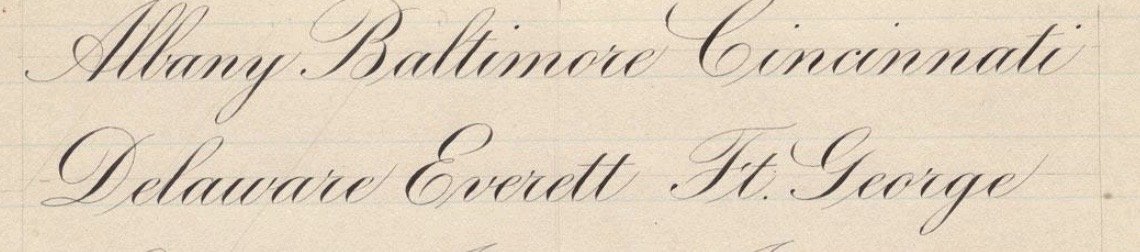 Albany Baltimore Cincinnati
Delaware Everett Ft. George